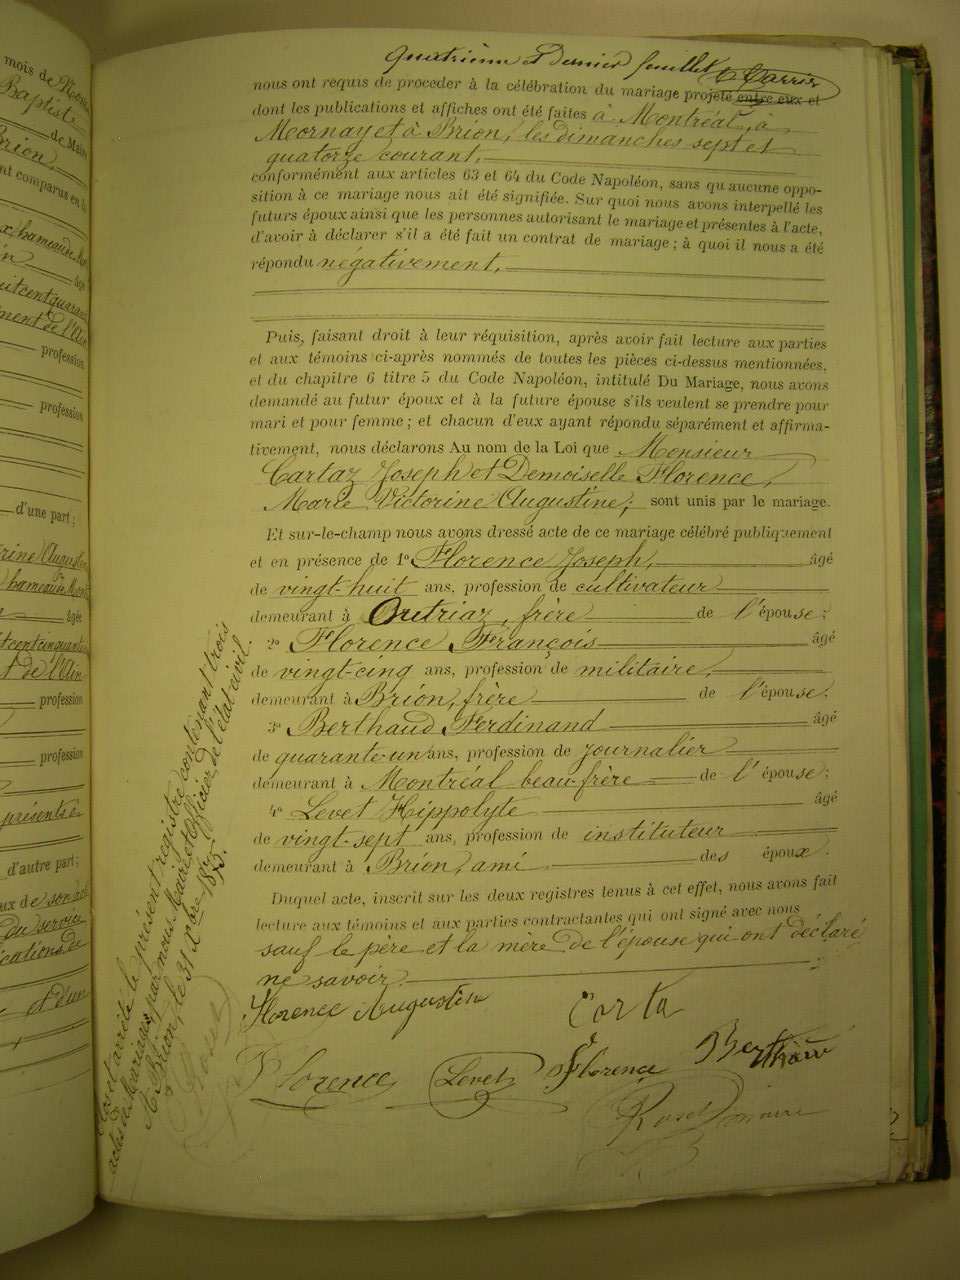 mois de
Baptiste
de Maire
Brion
ont comparus en la
x, hameau de
âgé
uit cent quarante
ment de l'Ain
profession
profession
d'une part;
rine Augustine
hameau de
âgée
it cent cinquante
t de l'Ain
profession
profession
présents &
d'autre part;
ux de
du
ications de
et d'un
Quatrième et Dernier feuillet
nous ont requis de procéder à la célébration du mariage projeté entre eux et
dont les publications et affiches ont été faites à Montréal, à
Mornay et à Brion, les dimanches sept et
quatorze courant,
conformément aux articles 63 et 64 du Code Napoléon, sans qu'aucune oppo-
sition à ce mariage nous ait été signifiée. Sur quoi nous avons interpellé les
futurs époux ainsi que les personnes autorisant le mariage et présentes à l'acte,
d'avoir à déclarer s'il a été fait un contrat de mariage; à quoi il nous a été
répondu négativement,
Puis, faisant droit à leur réquisition, après avoir fait lecture aux parties
et aux témoins ci-après nommés de toutes les pièces ci-dessus mentionnées,
et du chapitre 6 titre 5 du Code Napoléon, intitulé Du Mariage, nous avons
demandé au futur époux et à la future épouse s'ils veulent se prendre pour
mari et pour femme; et chacun d'eux ayant répondu séparément et affirma-
tivement, nous déclarons Au nom de la Loi que Monsieur
Cartaz Joseph et Demoiselle Florence,
Marie Victorine Augustine; sont unis par le mariage.
Et sur-le-champ nous avons dressé acte de ce mariage célébré publiquement
et en présence de 1º Florence Joseph, âgé
de vingt-huit ans, profession de cultivateur
demeurant à Outriaz, frère de l'épouse;
2º Florence François âgé
de vingt-cinq ans, profession de militaire,
demeurant à Brion, frère de l'épouse;
3º Berthaud Ferdinand âgé
de quarante-un ans, profession de journalier
demeurant à Montréal beau-frère de l'épouse;
4º Levet Hippolyte âgé
de vingt-sept ans, profession de instituteur
demeurant à Brion, ami des époux.
Duquel acte, inscrit sur les deux registres tenus à cet effet, nous avons fait
lecture aux témoins et aux parties contractantes qui ont signé avec nous
sauf le père et la mère de l'épouse qui ont déclaré
ne savoir.
Florence Augustine
Carta
Florence
Levet
Florence
Berthaud
Rosel maire
Clos et arrêté le présent registre contenant trois
actes de Mariages, par nous Maire et Officier de l'état civil.
A Brion, le 31 Xbre 1875.
Rosel